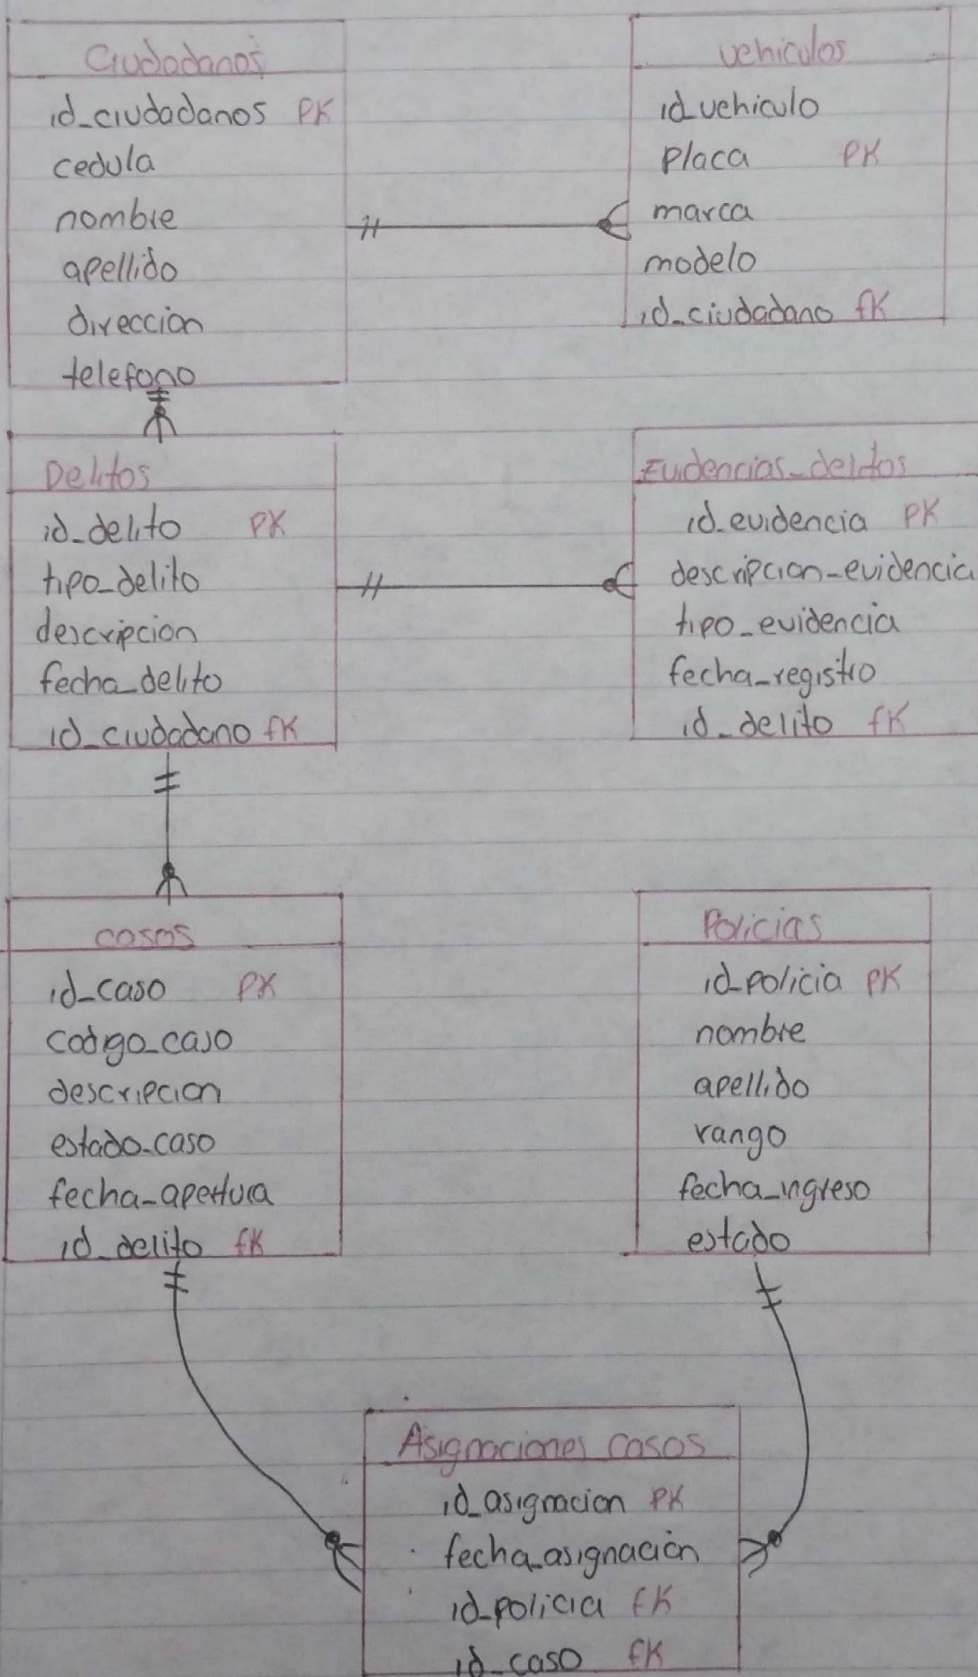 Ciudadanos
id_ciudadanos PK
cedula
nombre
apellido
direccion
telefono
vehiculos
id_vehiculo
Placa PK
marca
modelo
id_ciudadano fK
Delitos
id_delito PK
tipo_delito
descripcion
fecha_delito
id_ciudadano fK
Evidencias_delitos
id_evidencia PK
descripcion_evidencia
tipo_evidencia
fecha_registro
id_delito fK
casos
id_caso PK
codigo_caso
descripcion
estado_caso
fecha_apertura
id_delito fK
Policias
id_policia PK
nombre
apellido
rango
fecha_ingreso
estado
Asignaciones casos
id_asignacion PK
fecha_asignación
id_policia fK
id_caso fK